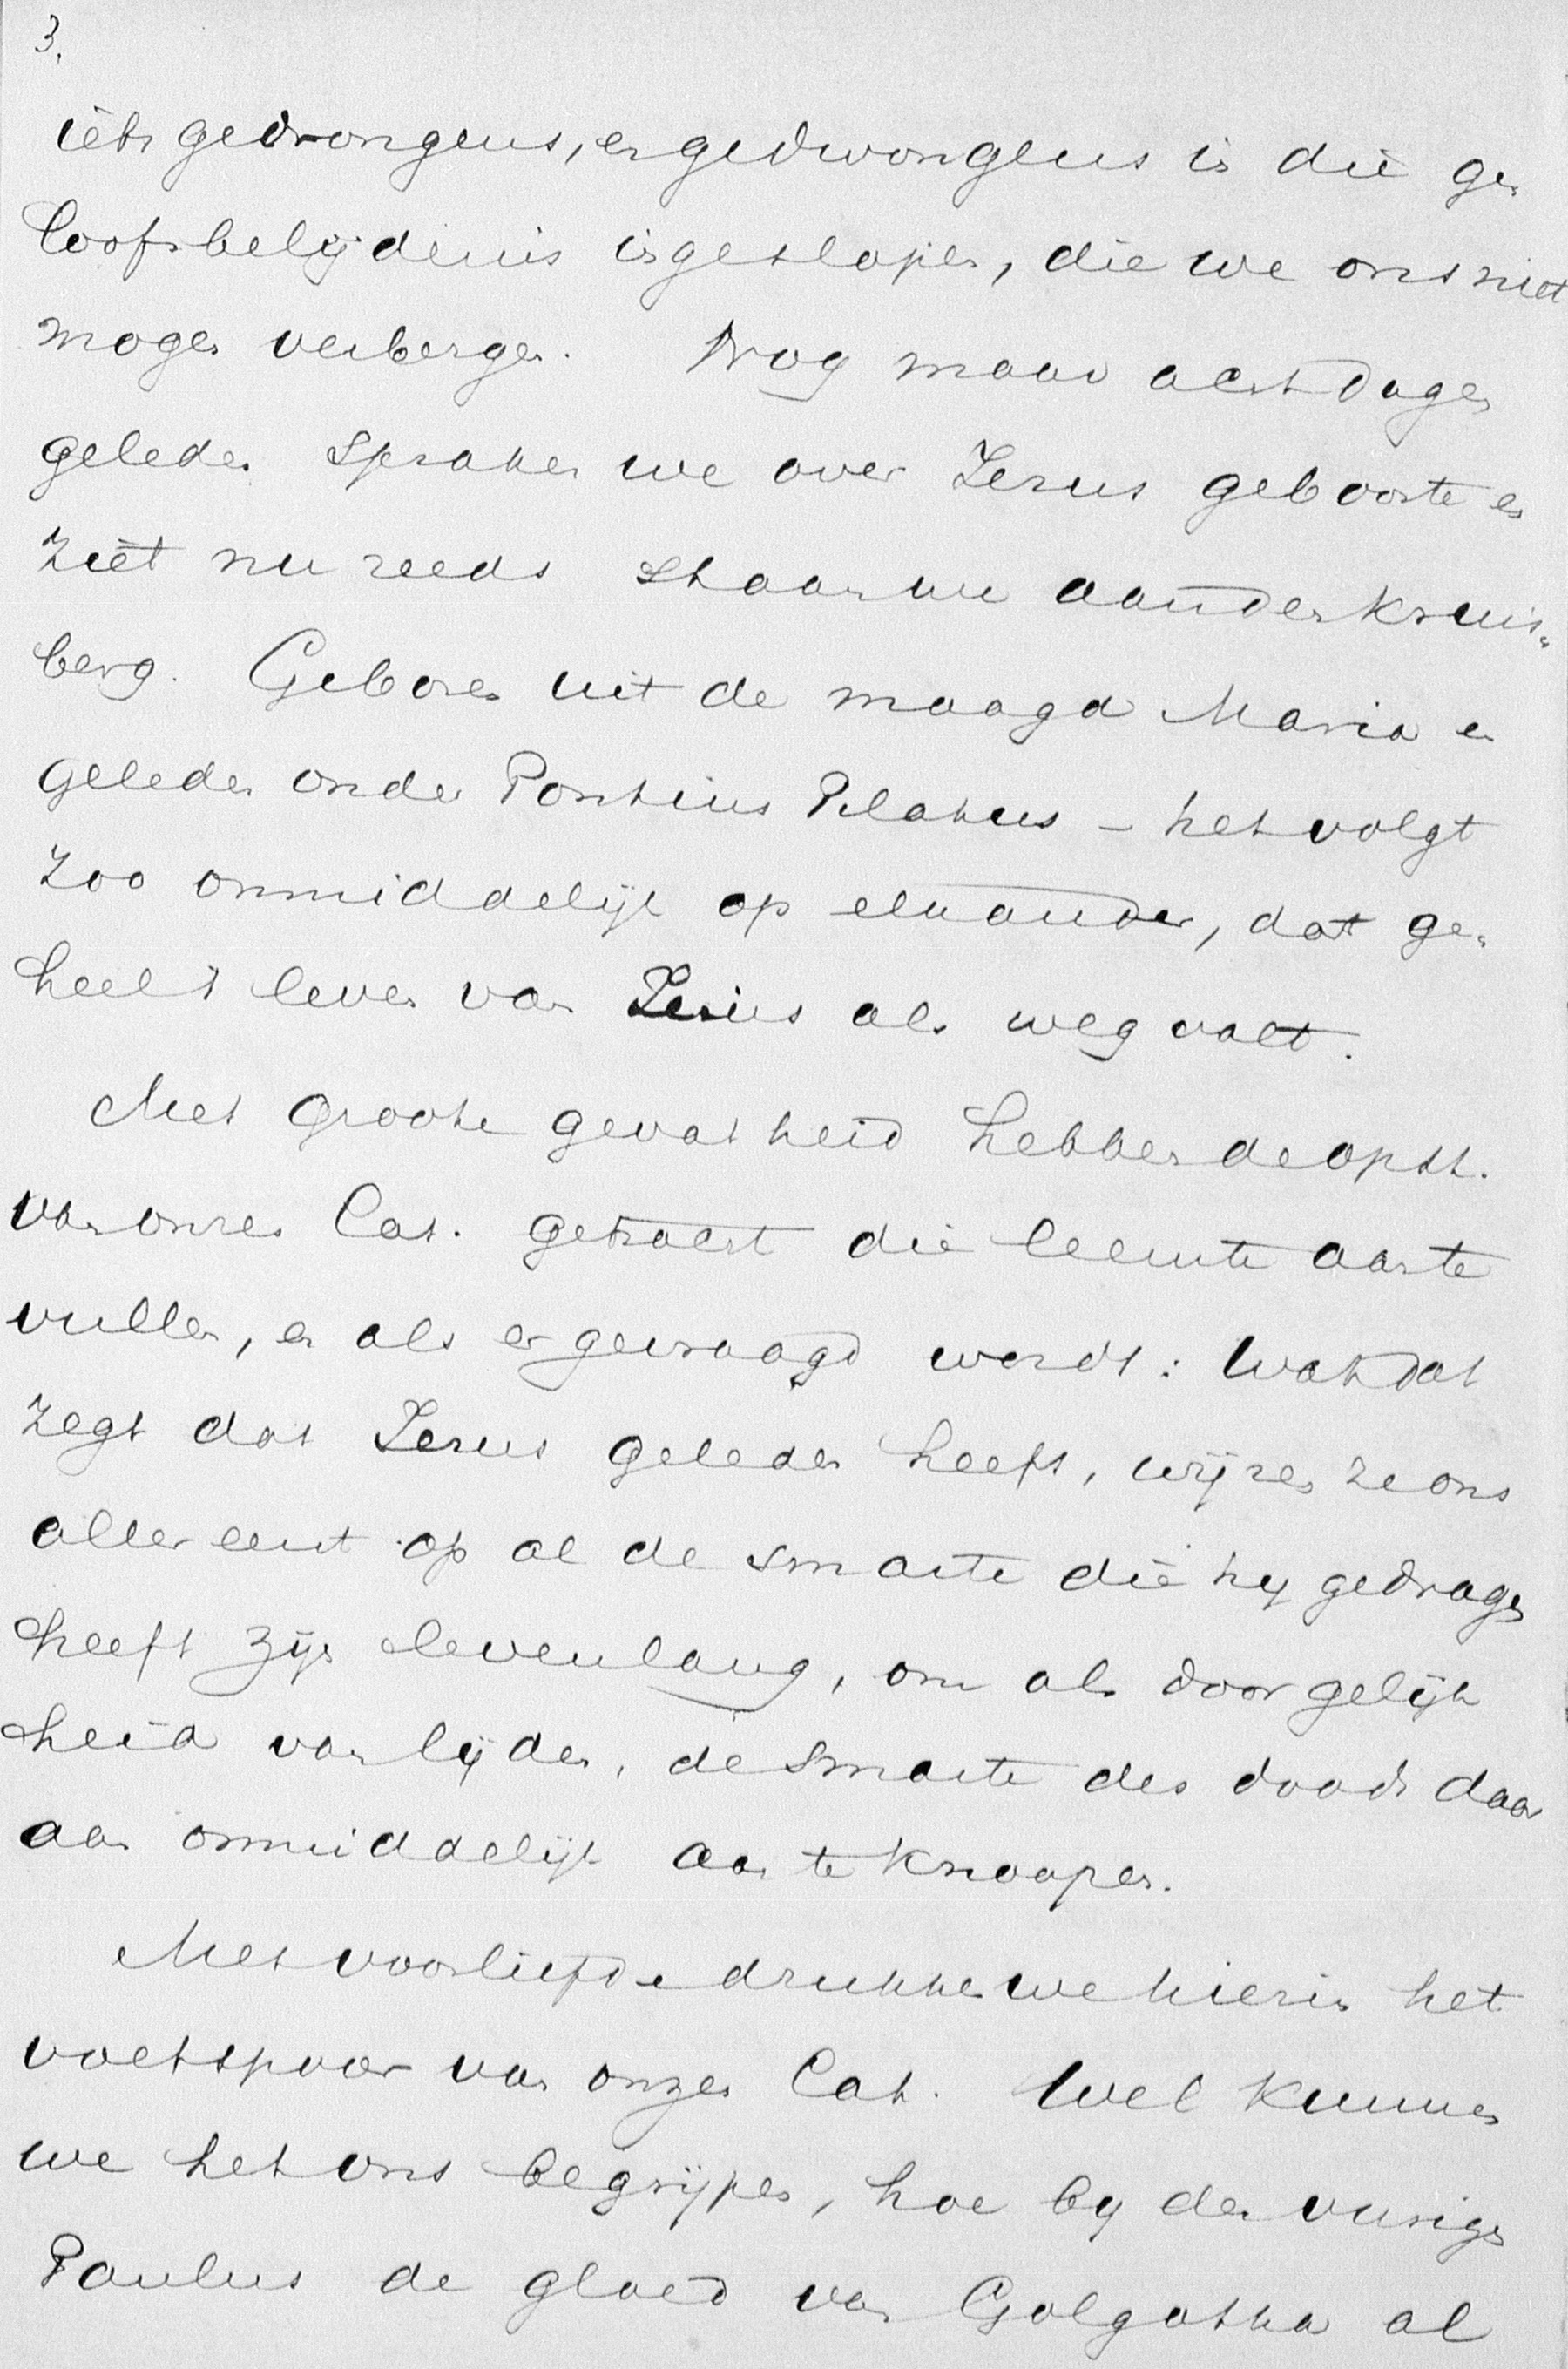 3.
iets gedrongens, en gedwongens in die ge-
loofsbelijdenis ingeslopen, die we ons niet
mogen verbergen. Nog maar acht dagen
geleden spraken we over Jezus geboorte en
ziet nu reeds staan we aan den kruis-
berg. Geboren uit de maagd Maria en
geleden onder Pontius Pilatus – het volgt
zoo onmiddelijk op elkander, dat ge-
heel 't leven van Jezus als weg valt.
Met groote gevatheid hebben de opst.
van onzen Cat. getracht die leemte aan te
vullen, en als er gevraagd wordt: Wat dat
zegt dat Jezus geleden heeft, wijzen ze ons
allereerst op al de smarte die hij gedragen
heeft zijn levenlang, om als door gelijk
heid van lijden, de smarte des doods daar
aan onmiddelijk aan te knoopen.
Met voorliefde drukken we hierin het
voetspoor van onzen Cat. Wel kunnen
we het ons begrijpen, hoe bij den vurigen
Paulus de gloed van Golgotha al